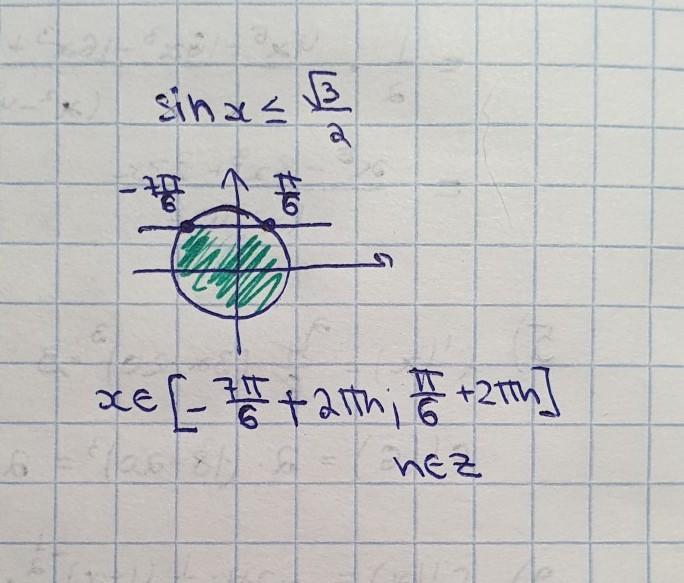 sin x ≤ √3/2
-7π/6 π/6
x∈[-7π/6+2πn; π/6+2πn]
n∈Z